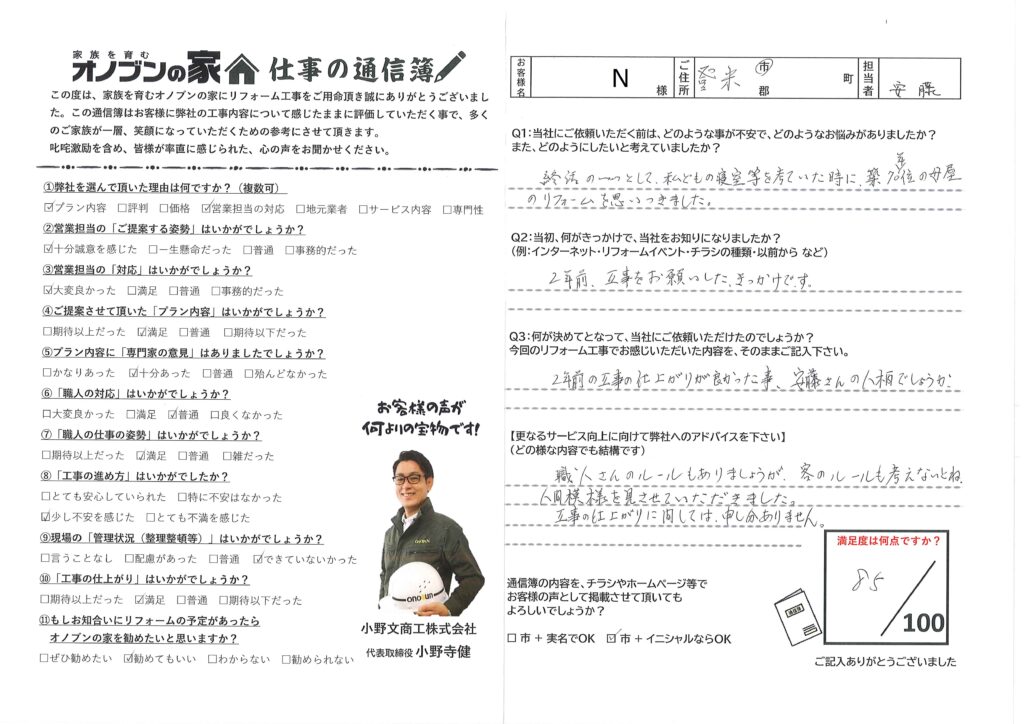 家族を育む
オノブンの家 仕事の通信簿
この度は、家族を育むオノブンの家にリフォーム工事をご用命頂き誠にありがとうございまし
た。この通信簿はお客様に弊社の工事内容について感じたままに評価していただく事で、多く
のご家族が一層、笑顔になっていただくための参考にさせて頂きます。
叱咤激励を含め、皆様が率直に感じられた、心の声をお聞かせください。
①弊社を選んで頂いた理由は何ですか?(複数可)
☑プラン内容 □評判 □価格 ☑営業担当の対応 □地元業者 □サービス内容 □専門性
②営業担当の「ご提案する姿勢」はいかがでしょうか?
☑十分誠意を感じた □一生懸命だった □普通 □事務的だった
③営業担当の「対応」はいかがでしょうか?
☑大変良かった □満足 □普通 □事務的だった
④ご提案させて頂いた「プラン内容」はいかがでしょうか?
□期待以上だった ☑満足 □普通 □期待以下だった
⑤プラン内容に「専門家の意見」はありましたでしょうか?
□かなりあった ☑十分あった □普通 □殆んどなかった
⑥「職人の対応」はいかがでしょうか?
□大変良かった □満足 ☑普通 □良くなかった
⑦「職人の仕事の姿勢」はいかがでしょうか?
□期待以上だった ☑満足 □普通 □雑だった
⑧「工事の進め方」はいかがでしたか?
□とても安心していられた □特に不安はなかった
☑少し不安を感じた □とても不満を感じた
⑨現場の「管理状況(整理整頓等)」はいかがでしょうか?
□言うことなし □配慮があった □普通 ☑できていなかった
⑩「工事の仕上がり」はいかがでしょうか?
□期待以上だった ☑満足 □普通 □期待以下だった
⑪もしお知合いにリフォームの予定があったら
オノブンの家を勧めたいと思いますか?
□ぜひ勧めたい ☑勧めてもいい □わからない □勧められない
お客様の声が
何よりの宝物です!
ONOBUN
onobun
小野文商工株式会社
代表取締役 小野寺健
お客様名 N 様 ご住所 登米 市 郡 町 担当者 安藤
Q1:当社にご依頼いただく前は、どのような事が不安で、どのようなお悩みがありましたか?
また、どのようにしたいと考えていましたか?
終活の一つとして、私どもの寝室等を考ていた時に、築70年位の母屋
のリフォームを思いつきました。
Q2:当初、何がきっかけで、当社をお知りになりましたか?
(例:インターネット・リフォームイベント・チラシの種類・以前から など)
2年前、工事をお願いした、きっかけです。
Q3:何が決めてとなって、当社にご依頼いただけたのでしょうか?
今回のリフォーム工事でお感じいただいた内容を、そのままご記入下さい。
2年前の工事の仕上がりが良かった事、安藤さんの人柄でしょうか
【更なるサービス向上に向けて弊社へのアドバイスを下さい】
(どの様な内容でも結構です)
職人さんのルールもありましょうが、客のルールも考えないとね、
人間模様を見させていただきました。
工事の仕上がりに関しては、申し分ありません。
満足度は何点ですか?
85/100
通信簿の内容を、チラシやホームページ等で
お客様の声として掲載させて頂いても
よろしいでしょうか?
通信簿
□市+実名でOK ☑市+イニシャルならOK
ご記入ありがとうございました